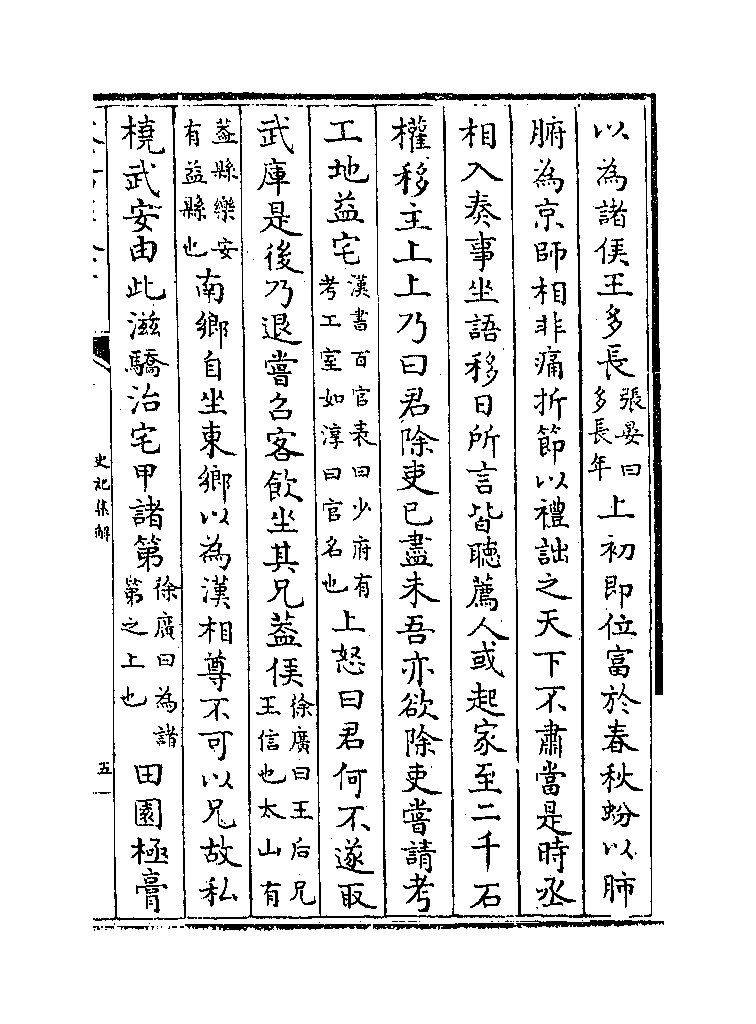 以為諸侯王多長張晏曰多長年上初即位富於春秋蚡以肺
腑為京師相非痛折節以禮詘之天下不肅當是時丞
相入奏事坐語移日所言皆聽薦人或起家至二千石
權移主上上乃曰君除吏已盡未吾亦欲除吏嘗請考
工地益宅漢書百官表曰少府有考工室如淳曰官名也上怒曰君何不遂取
武庫是後乃退嘗召客飲坐其兄蓋侯徐廣曰王后兄王信也太山有
蓋縣樂安有益縣也南鄉自坐東鄉以為漢相尊不可以兄故私
橈武安由此滋驕治宅甲諸第徐廣曰為諸第之上也田園極膏
史記集解
五